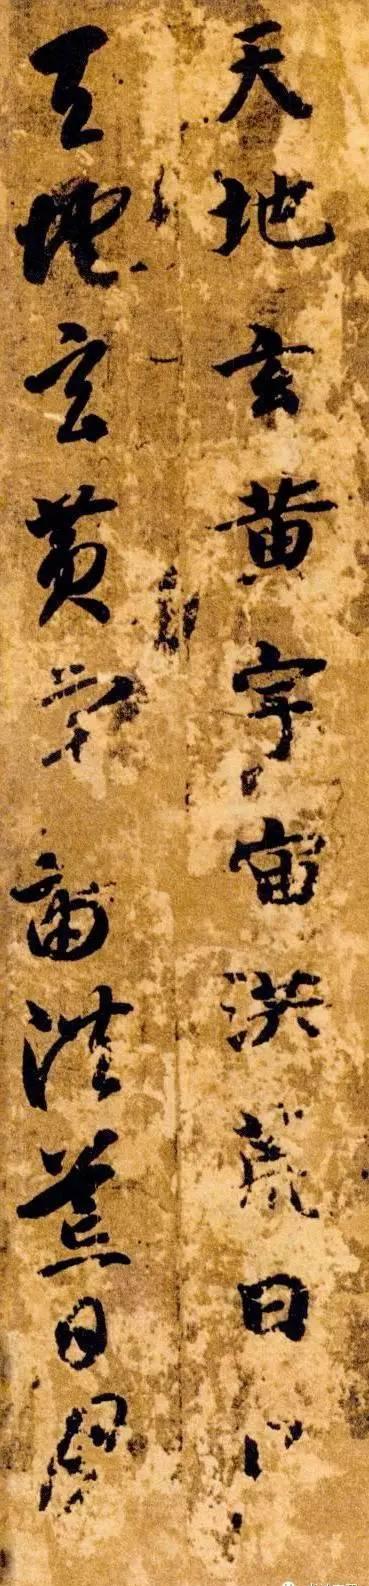 天地玄黄宇宙洪荒日
天地玄黄宇宙洪荒日月